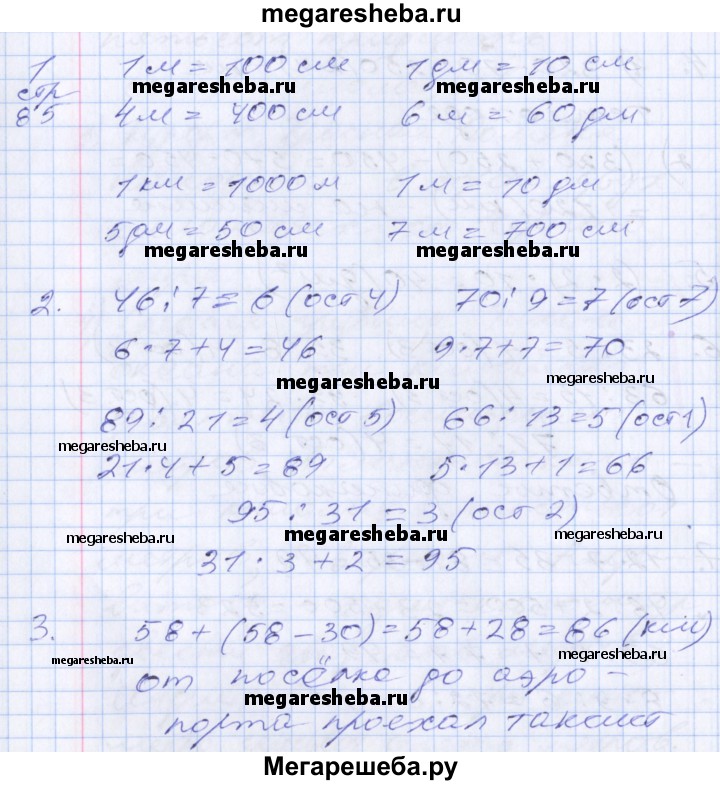 megaresheba.ru
1 1 м = 100 см 1 дм = 10 см
стр megaresheba.ru megaresheba.ru
85 4 м = 400 см 6 м = 60 дм
1 км = 1000 м 1 м = 10 дм
5 дм = 50 см 7 м = 700 см
megaresheba.ru megaresheba.ru
2. 46 : 7 = 6 (ост 4) 70 : 9 = 7 (ост 7)
6 · 7 + 4 = 46 9 · 7 + 7 = 70
megaresheba.ru megaresheba.ru
89 : 21 = 4 (ост 5) 66 : 13 = 5 (ост 1)
megaresheba.ru
21 · 4 + 5 = 89 5 · 13 + 1 = 66
95 : 31 = 3 (ост 2)
megaresheba.ru megaresheba.ru megaresheba.ru
31 · 3 + 2 = 95
3. 58 + (58 - 30) = 58 + 28 = 86 (км)
megaresheba.ru megaresheba.ru
от посёлка до аэро -
megaresheba.ru
порта проехал таксист
Мегарешеба.ру